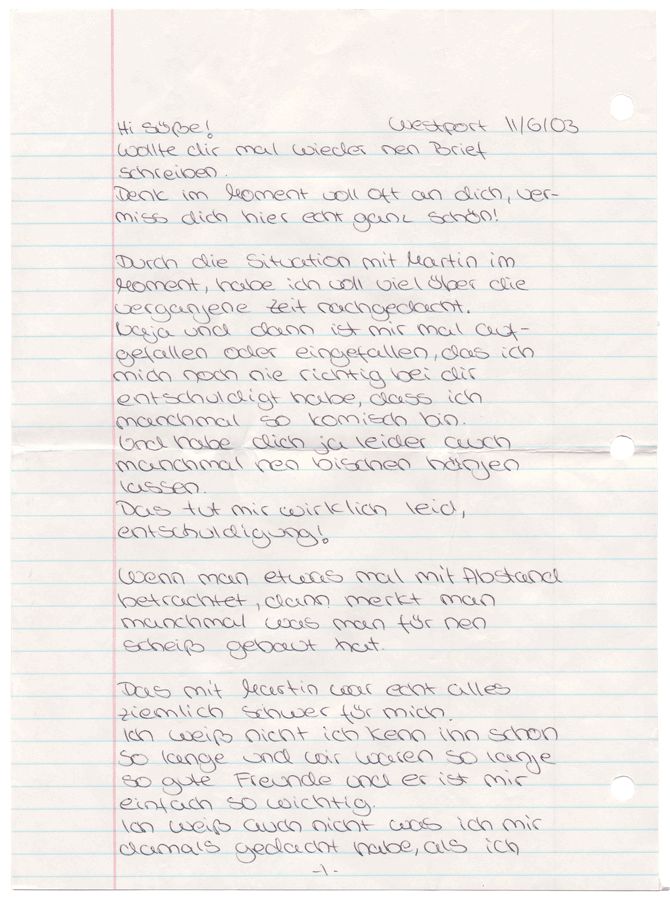 Hi süße! Westport 11/6/03
Wollte dir mal wieder nen Brief
schreiben.
Denk im Moment voll oft an dich, ver-
miss dich hier echt ganz schön!
Durch die Situation mit Martin im
Moment, habe ich voll viel über die
vergangene Zeit nachgedacht.
Naja und dann ist mir mal auf-
gefallen oder eingefallen, das ich
mich noch nie richtig bei dir
entschuldigt habe, dass ich
manchmal so komisch bin.
Und habe dich ja leider auch
manchmal nen bischen hängen
lassen.
Das tut mir wirklich leid,
entschuldigung!
Wenn man etwas mal mit Abstand
betrachtet, dann merkt man
manchmal was man für nen
scheiß gebaut hat.
Das mit Martin war echt alles
ziemlich schwer für mich.
Ich weiß nicht ich kenn ihn schon
so lange und wir waren so lange
so gute Freunde und er ist mir
einfach so wichtig.
Ich weiß auch nicht was ich mir
damals gedacht habe, als ich
-1-